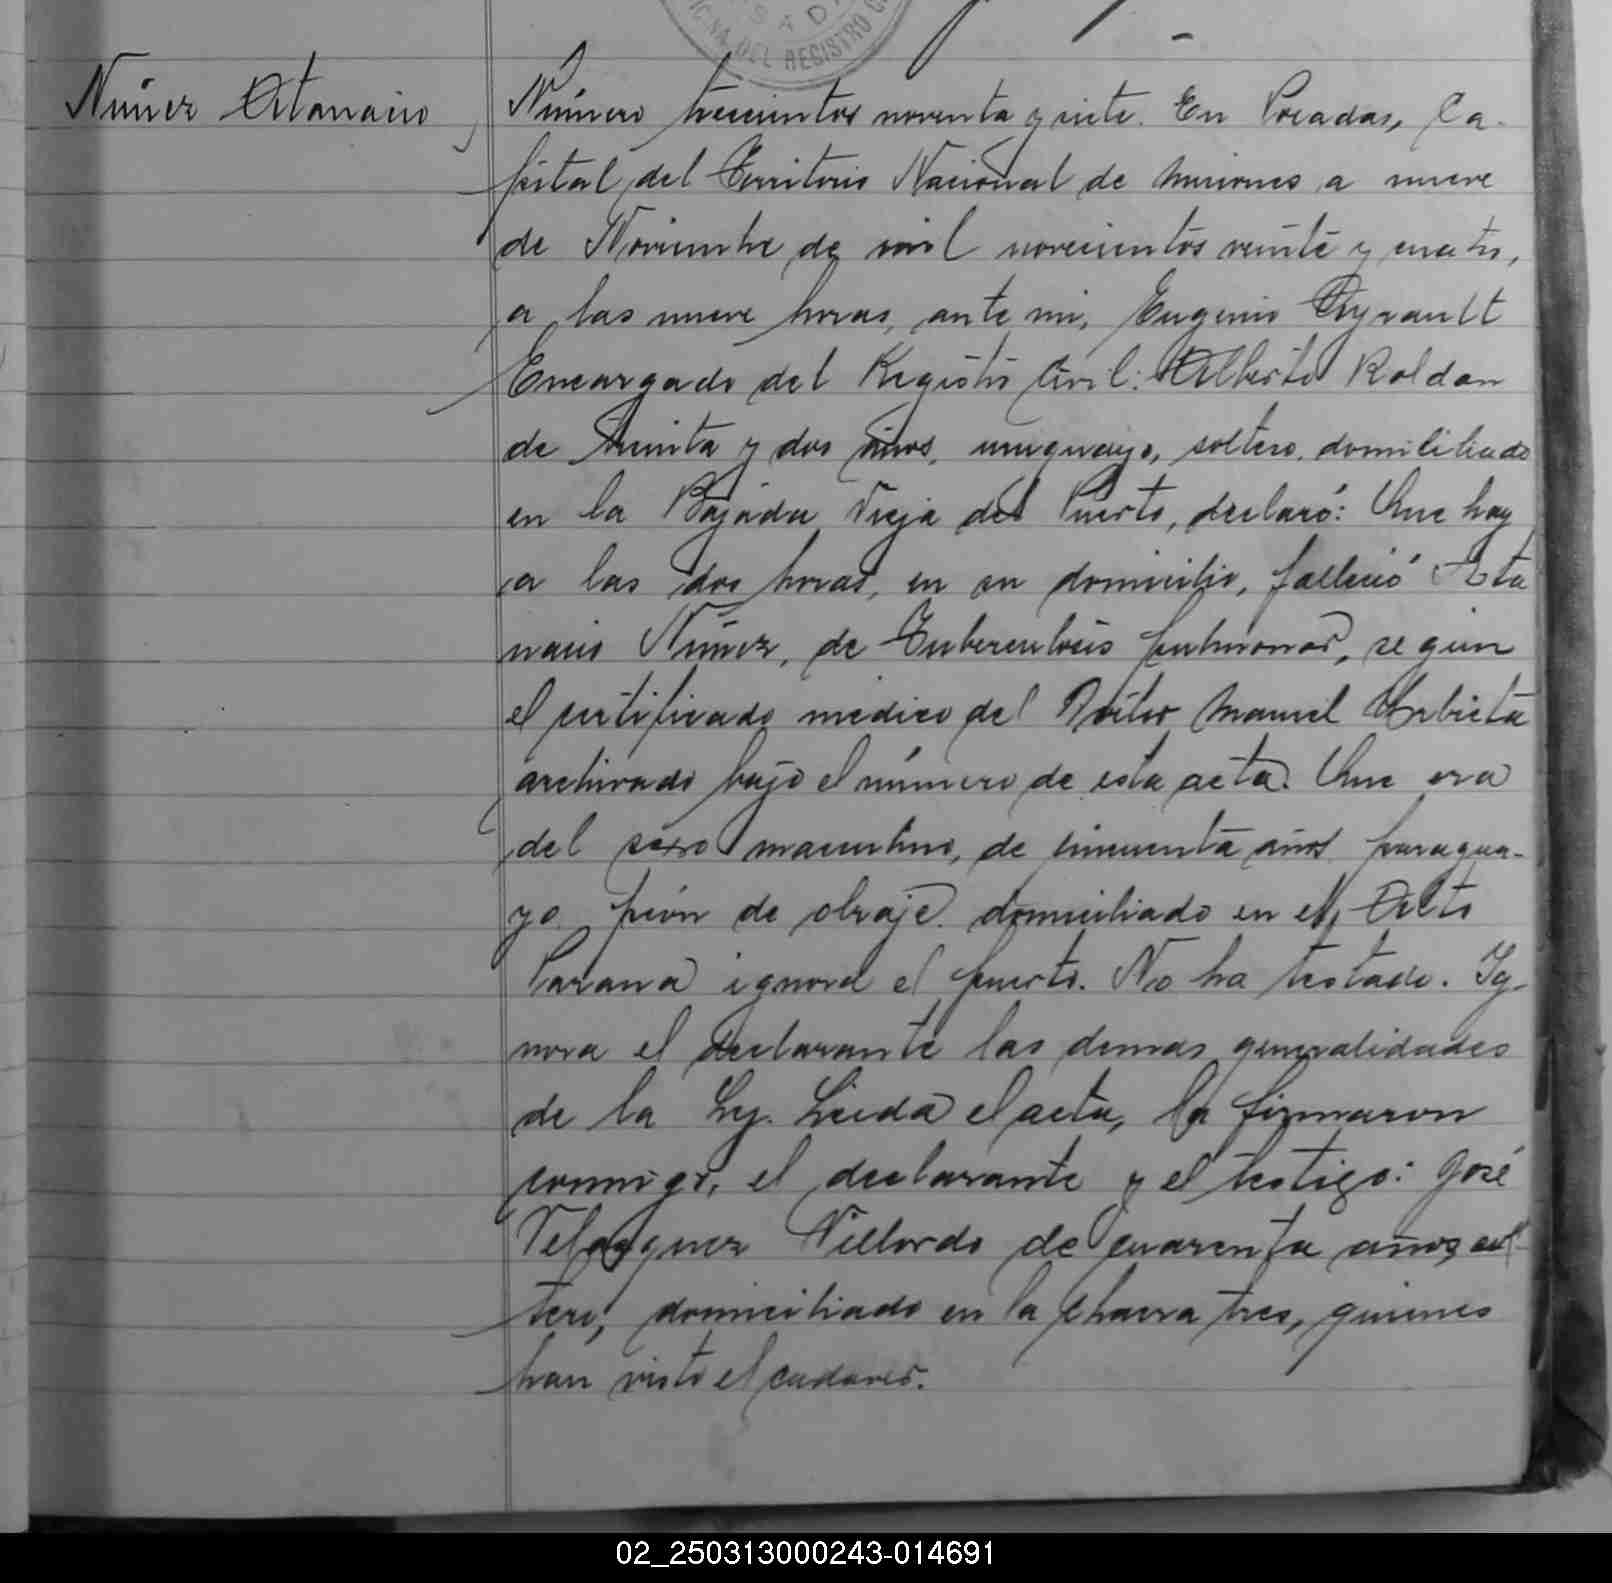 OFICINA DEL REGISTRO C
Nuñez Atanacio
Número trescientos noventa y siete. En Posadas, Ca-
pital del Territorio Nacional de Misiones a nueve
de Noviembre de mil novecientos veinte y cuatro,
a las nueve horas, ante mi, Eugenio Ayrault
Encargado del Registro Civil: Alberto Roldan
de treinta y dos años, uruguayo, soltero, domiciliado
en la Bajada Vieja del Puerto, declaró: Que hoy
a las dos horas, en su domicilio, falleció Ata
nacio Núñez, de Tuberculosis pulmonar, según
el certificado medico del Doctor Manuel Urbieta
archivado bajo el número de esta acta. Que era
del sexo masculino, de cincuenta años paragua-
yo peón de obraje domiciliado en el Alto
Paraná ignora el puerto. No ha testado. Ig-
nora el declarante las demas generalidades
de la Ley. Leida el acta, la firmaron
conmigo, el declarante y el testigo: José
Velazquez Villordo de cuarenta años, sol-
tero, domiciliado en la chacra tres, quienes
han visto el cadaver.
02_250313000243-014691